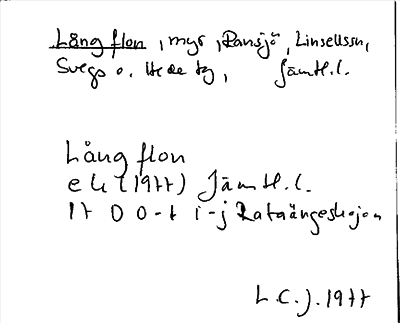 Långflon, myr, Ransjö, Linsellssn,
Svegs o. Hede tg, Jämtl. l.
Långflon
ek (1977) Jämtl. l.
17 D 0-1 i-j Rataängeskojan
L. C. J. 1977